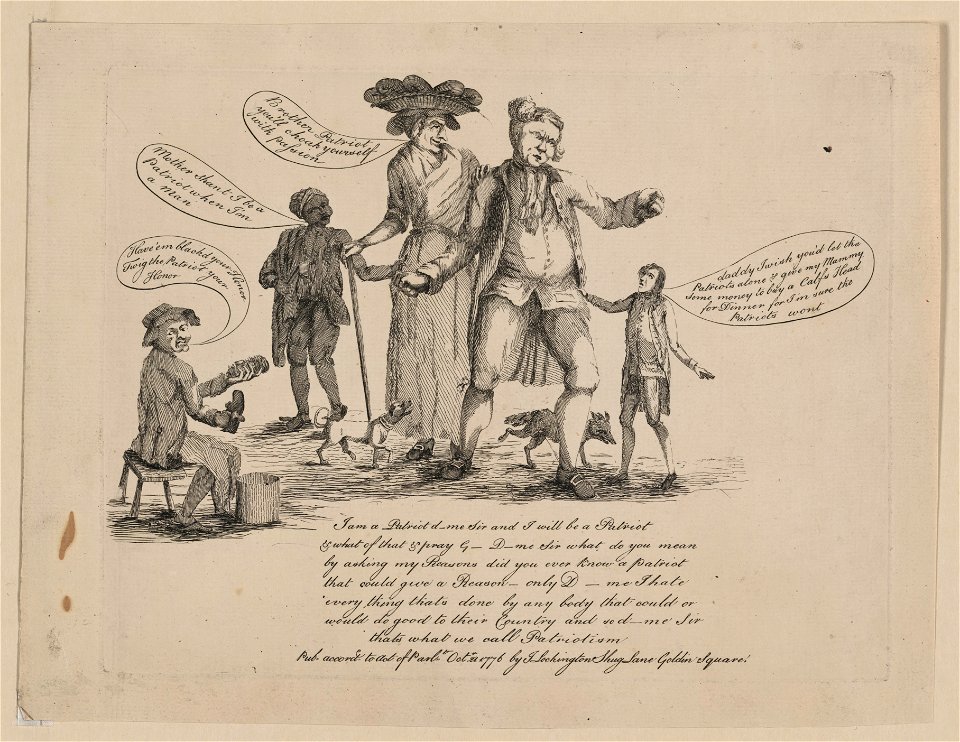 Brother Patriot
you'll choak yourself
with passion
Mother shant I be a
Patriot when I'm
a Man
Have'em blackd your Honor
Twig the Patriot your
Honor
daddy I wish you'd let the
Patriots alone & give my Mammy
some money to buy a Calf's Head
for Dinner for I'm sure the
Patriots wont
I am a Patriot d—me Sir and I will be a Patriot
& what of that & pray G— D—me Sir what do you mean
by asking my Reasons did you ever know a patriot
that could give a Reason— only D — me I hate
every thing thats done by any body that could or
would do good to their Country and so d—me Sir
thats what we call Patriotism
Pub. accord.g to Act of Parl.t Oct.r 21 1776 by J. Lockington Shug Lane Goldin Square.